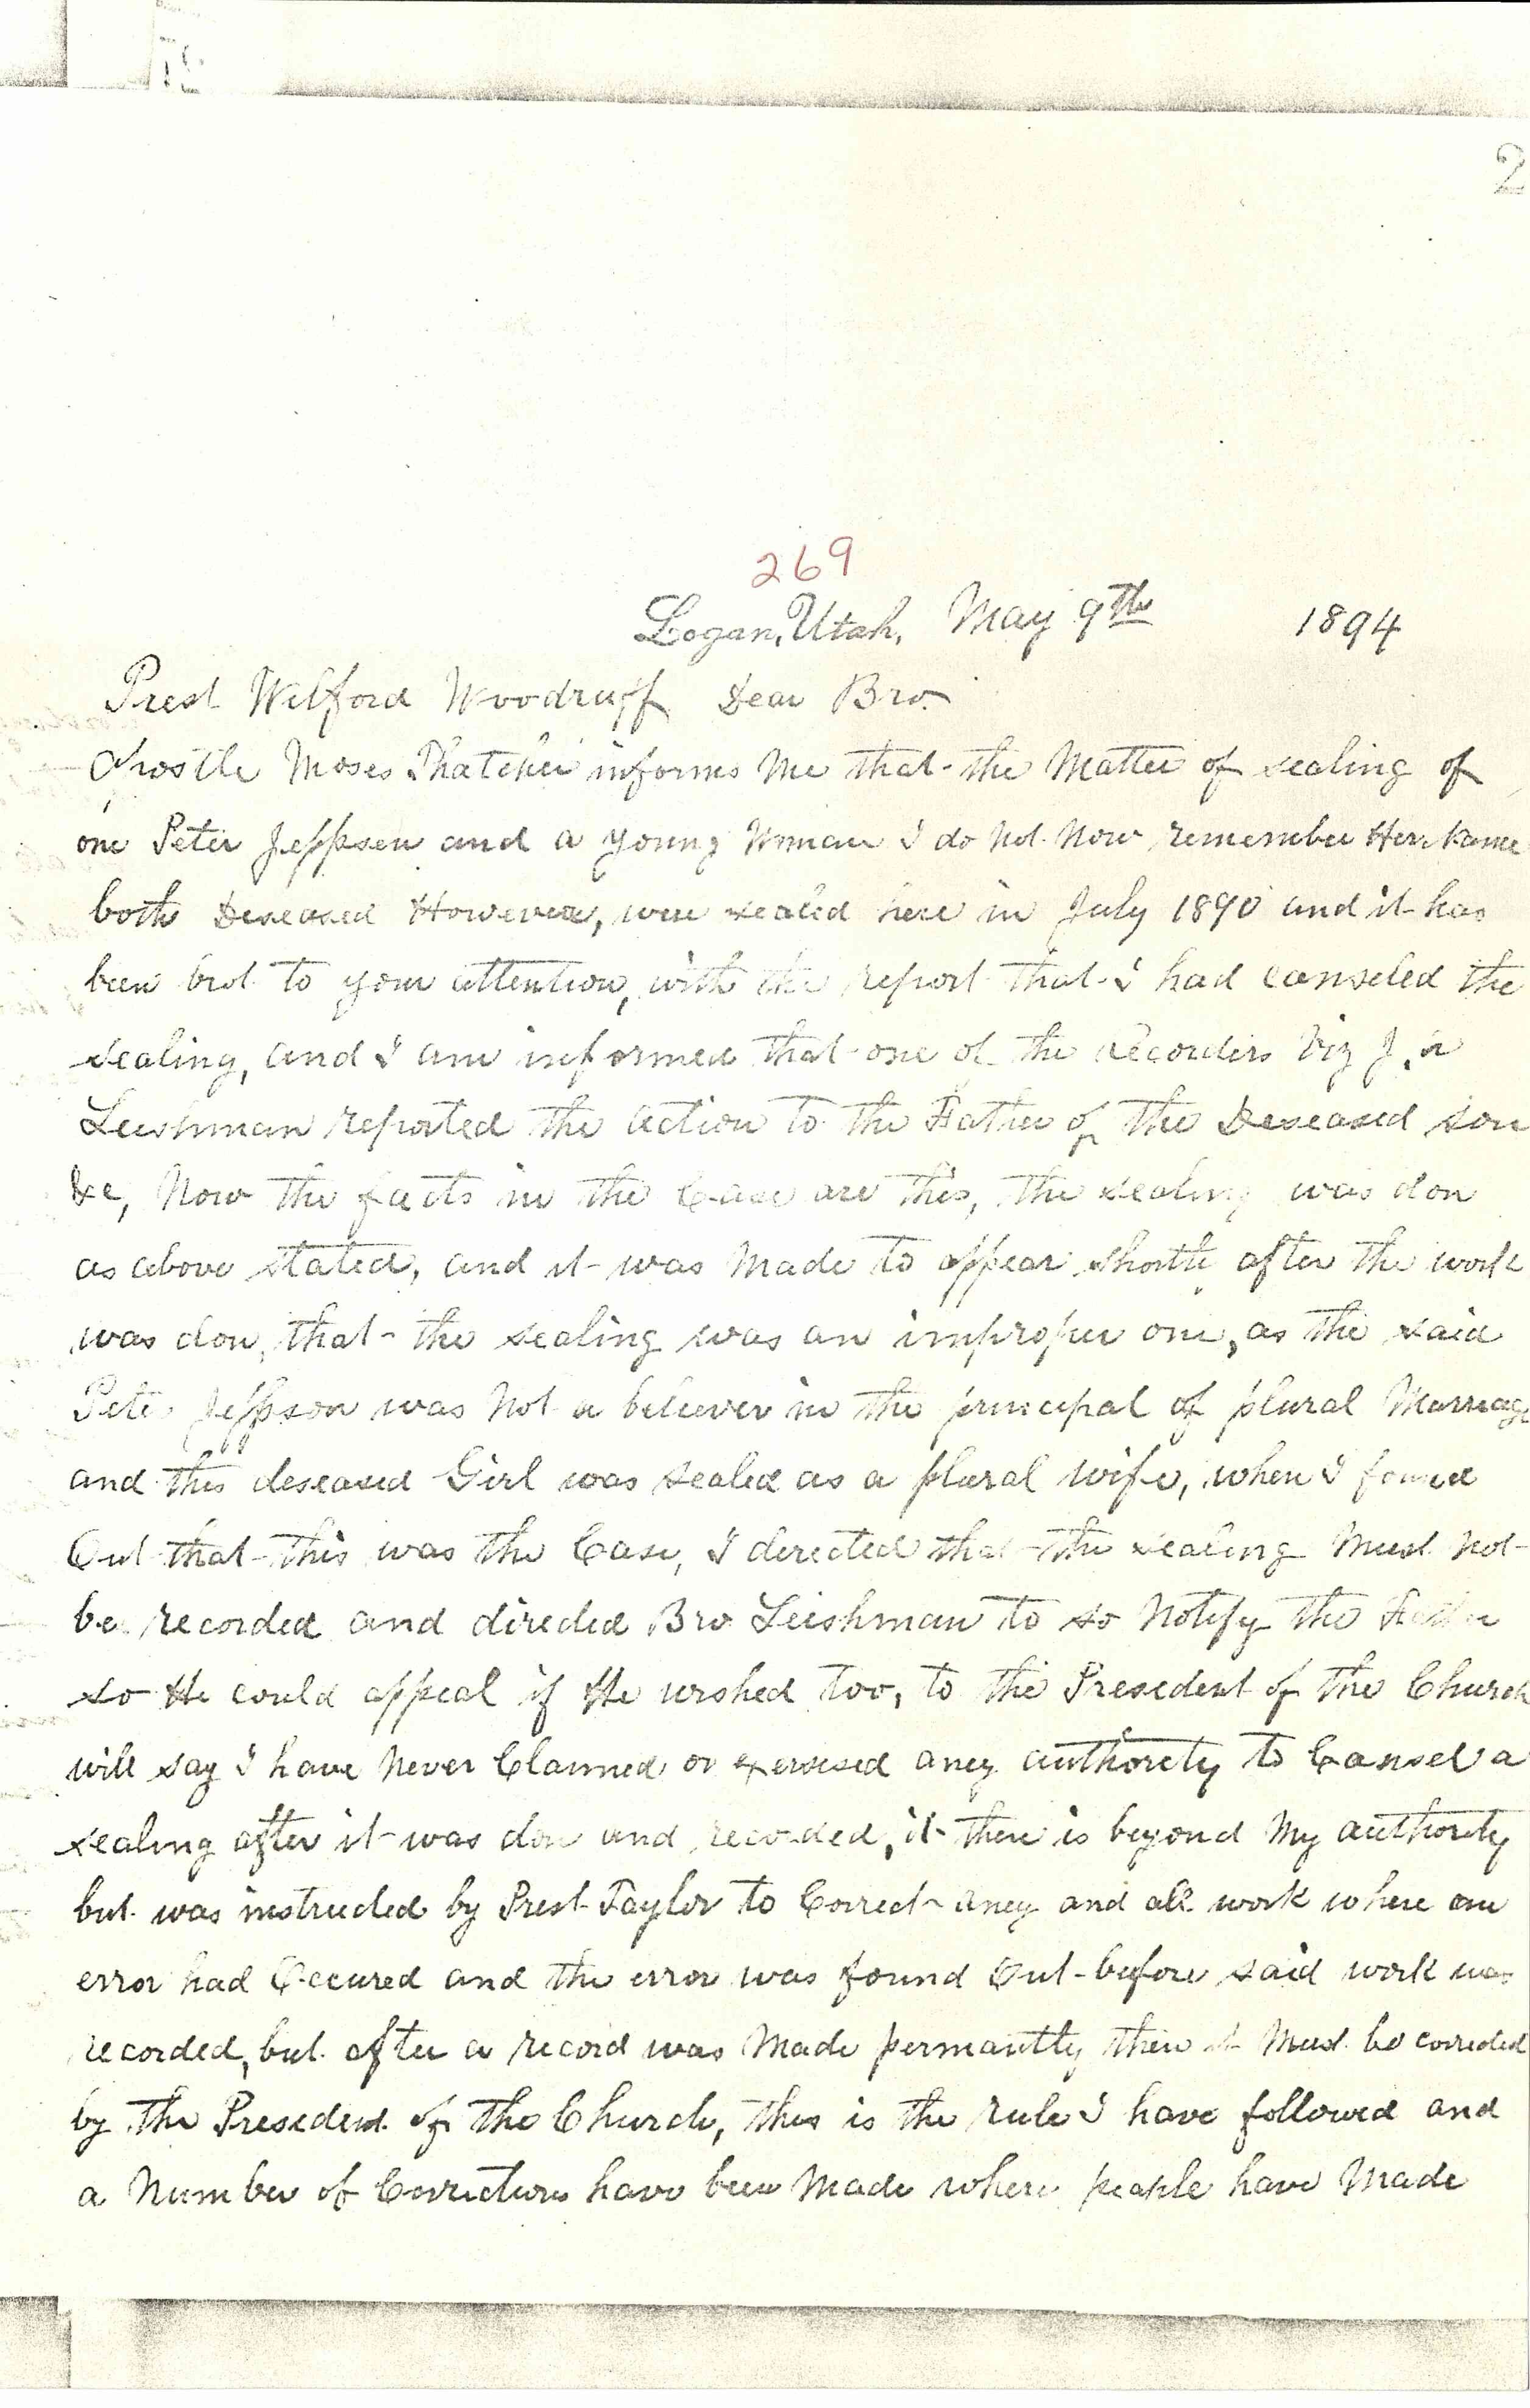 2
269
Logan, Utah, May 9th 1894
Prest Wilford Woodruff Dear Bro.
Apostle Moses Thatcher informs Me that the Matter of sealing of
one Peter Jeppsen and a young Woman I do Not Now remember Her Name
both Deseased However, were sealed here in July 1890 and it has
been brot to your attention, with the report that I had canseled the
sealing, and I am informed that one of the recorders Viz J. A
Leishman reported the action to the Father of the Deseased son
&c, Now the facts in the Case are this, the sealing was don
as above stated, and it was Made to appear shortly after the work
was don, that the sealing was an improper one, as the said
Peter Jeppson was Not a believer in the principal of plural Marriage
and this deseased Girl was sealed as a plural wife, when I found
Out that this was the Case, I derected that the sealing Must Not
be recorded and directed Bro Leishman to so Notify the Father
so He could appeal if He wished too, to the Presedent of the Church
will say I have Never Claimed or exersised aney authorety to Cansel a
sealing after it was don and recorded, it then is beyond My authority
but was instructed by Prest Taylor to Correct aney and all work where an
error had Occured and the error was found Out before said work was
recorded, but after a record was Made permantly then it Must be corrected
by the Presedent of the Church, this is the rule I have followed and
a Number of Corrections have been Made where people have Made